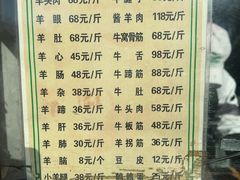 羊头肉 68元/斤 牛腱子 88元/斤
羊眼 68元/斤 酱羊肉 118元/斤
羊肚 68元/斤 牛窝骨筋 68元/斤
羊心 45元/斤 牛舌 98元/斤
羊肠 48元/斤 牛蹄筋 48元/斤
羊杂 38元/斤 牛肚 68元/斤
羊蹄 36元/斤 牛头肉 58元/斤
羊肝 36元/斤 牛板筋 48元/斤
羊肺 30元/斤 羊拐筋 36元/斤
羊脑 8元/个 豆皮 12元/斤
小羊腿 38元/斤 25元/斤